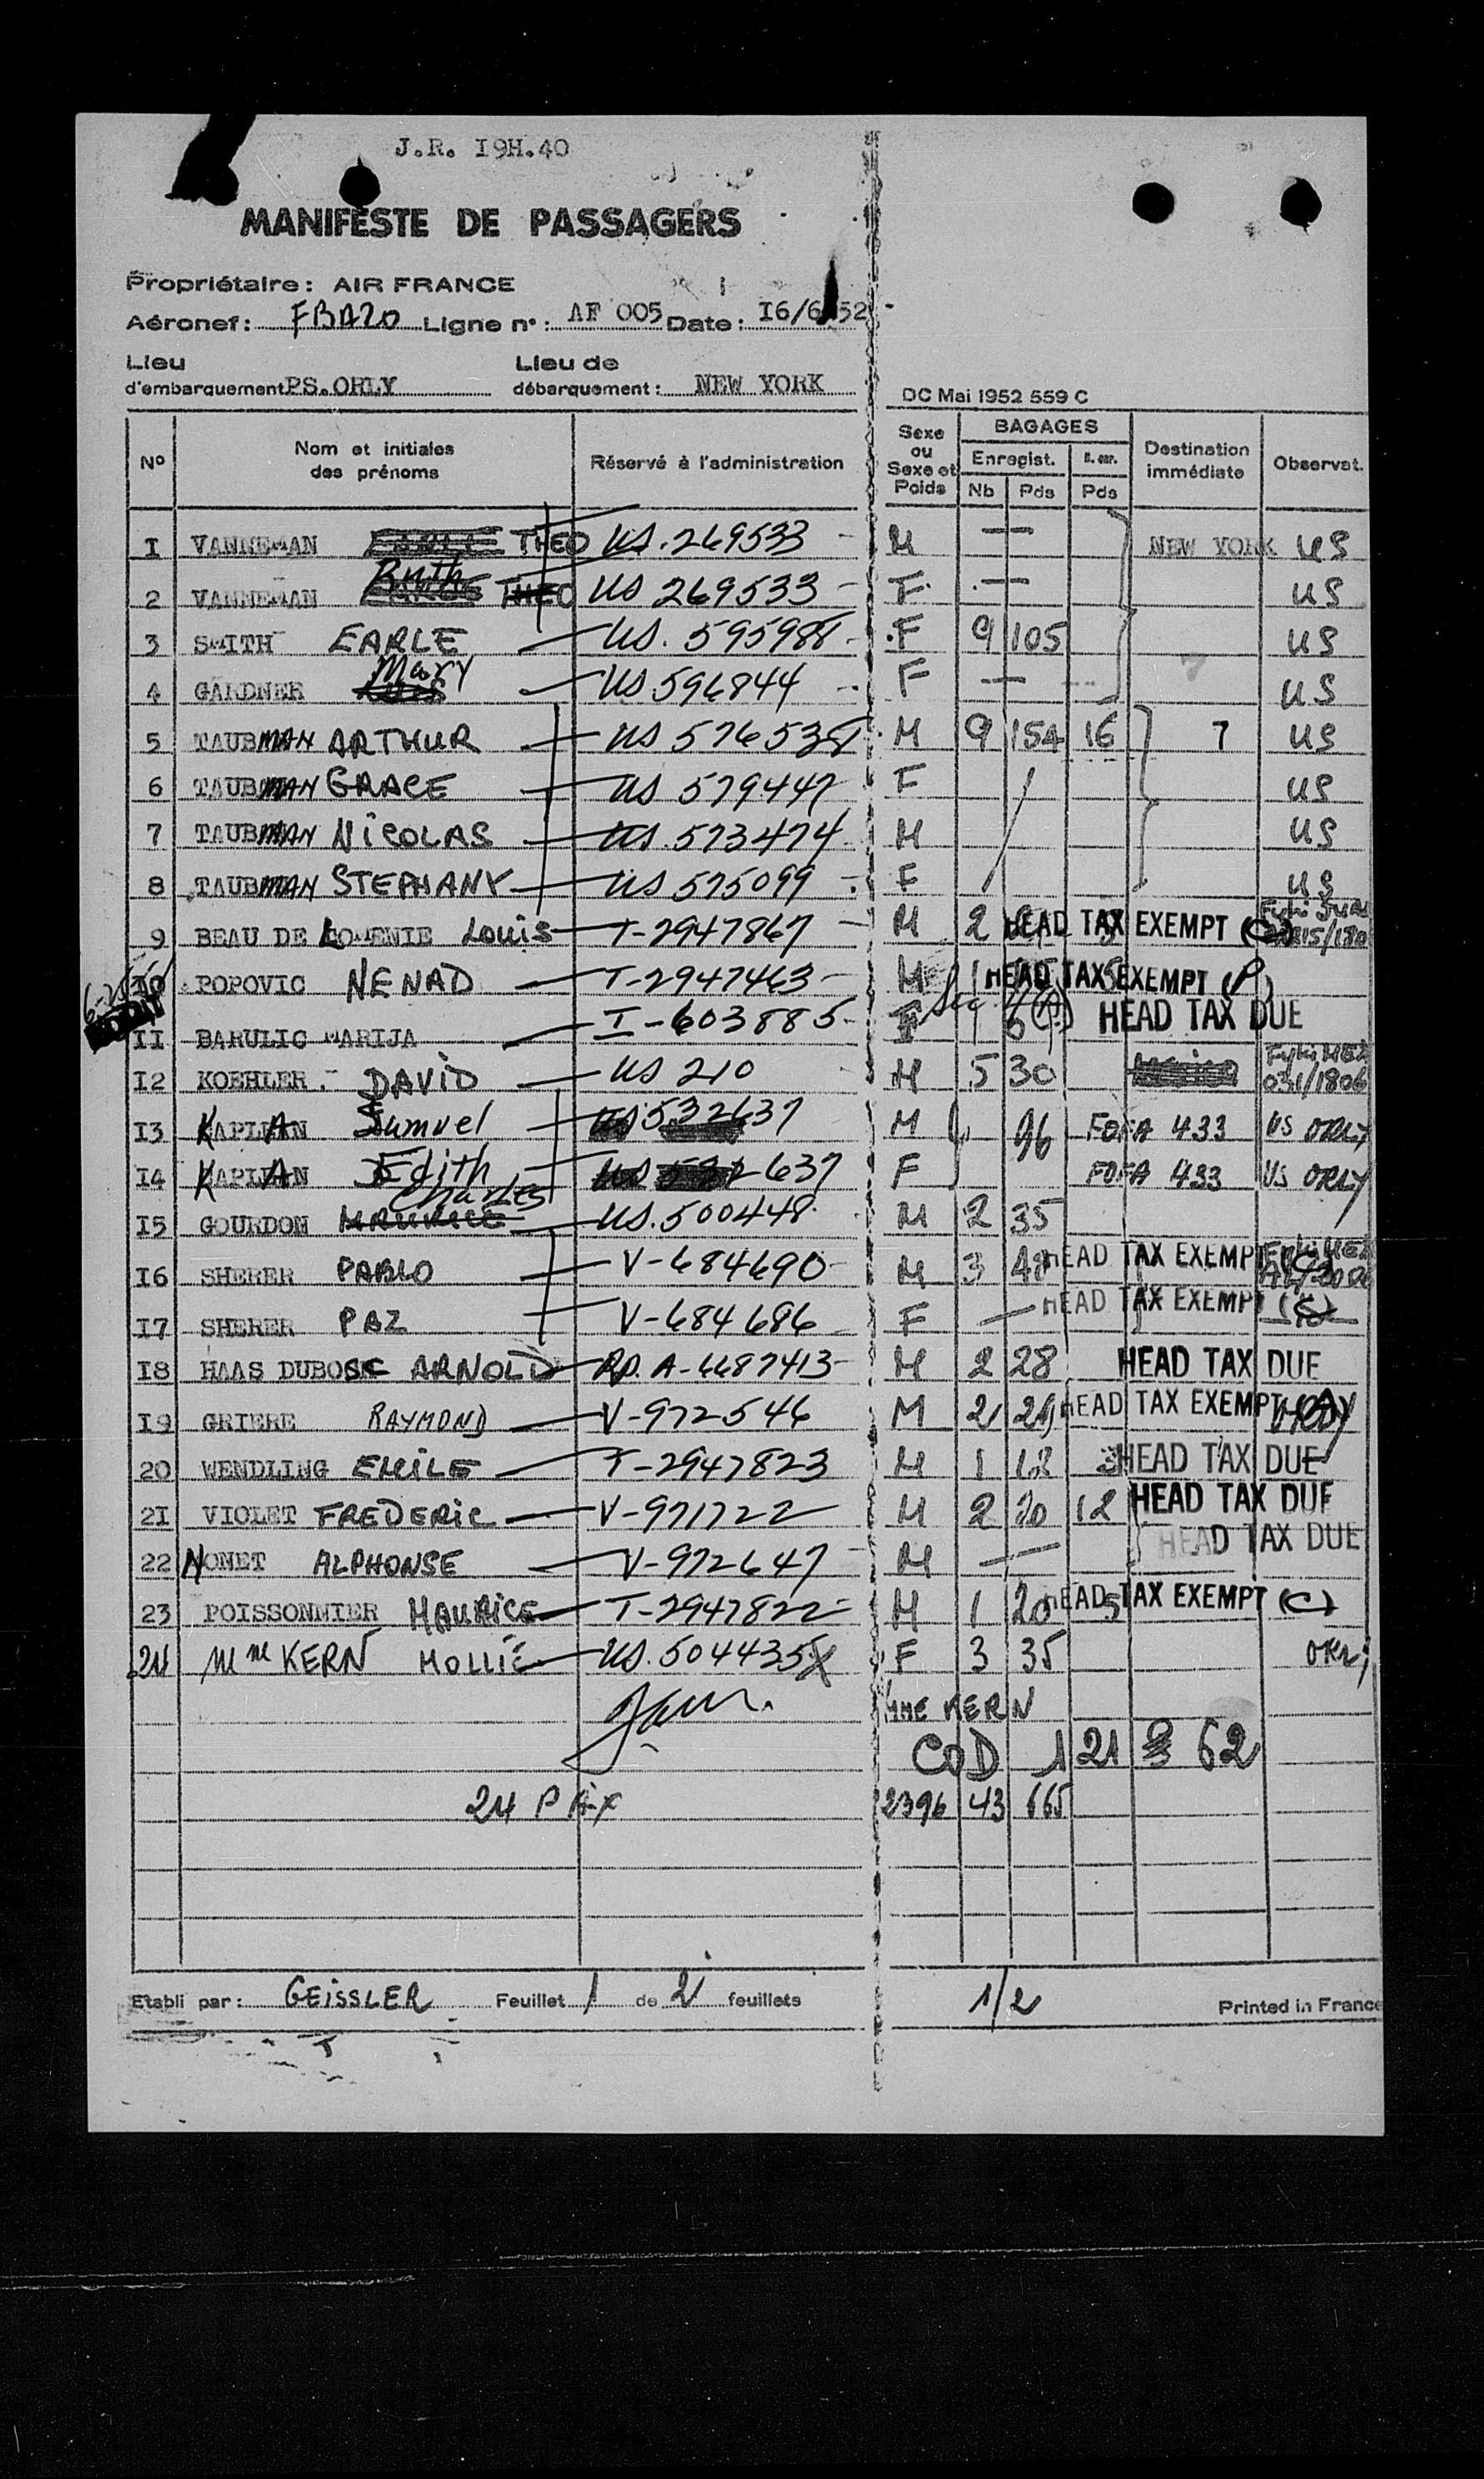 J.R. I9H.40
MANIFESTE DE PASSAGERS
Propriétaire: AIR FRANCE
Aéronef: FBAZO Ligne n°: AF 005 Date: I6/6/52
Lieu d'embarquement PS.ORLY Lieu de débarquement: NEW YORK
DC Mai 1952 559 C
N° Nom et initiales des prénoms Réservé à l'administration Sexe ou Sexe et Poids BAGAGES Enregist. Nb Pds Pds Destination immédiate Observat.
I VANNEMAN THEO US.269533 M — NEW YORK US
2 VANNEMAN Ruth THEO US 269533 F — US
3 SMITH EARLE US. 595988 F 9 105 US
4 GARDNER Mary US 596844 F — US
5 TAUBMAN ARTHUR US 576538 M 9 154 16 US
6 TAUBMAN GRACE US 579447 F US
7 TAUBMAN NICOLAS US.573474 M US
8 TAUBMAN STEPHANY US 575099 F US
9 BEAU DE LOMENIE Louis T-2947867 M 2 HEAD TAX EXEMPT (C)
I0 POPOVIC NENAD T-2947463 M 1 HEAD TAX EXEMPT (P)
II BARULIC MARIJA I-603885 F HEAD TAX DUE
I2 KOEHLER DAVID US 210 M 5 30 031/1806
I3 KAPLAN Samuel US 532637 M 96 FOFA 433 US ORLY
I4 KAPLAN Edith 637 F FOFA 433 US ORLY
I5 GOURDON MAURICE Charles US.500448 M 2 35
I6 SHERER PABLO V-684690 M 3 48 HEAD TAX EXEMPT (C)
I7 SHERER PAZ V-684686 F — HEAD TAX EXEMPT (C)
I8 HAAS DUBOSC ARNOLD Rp. A-6687413 M 2 28 HEAD TAX DUE
I9 GRIERE RAYMOND V-972546 M 2 HEAD TAX EXEMPT
20 WENDLING EMILE T-2947823 M 1 18 HEAD TAX DUE
2I VIOLET FREDERIC V-971722 M 2 20 12 HEAD TAX DUE
HEAD TAX DUE
22 NONET ALPHONSE V-972647 M —
23 POISSONNIER MAURICE T-2947822 M 1 20 5 HEAD TAX EXEMPT (C)
24 Mme KERN MOLLIE US.504435 F 3 35
MME KERN
COD 1 21 62
24 PAX 2396 43 665
Etabli par: GEISSLER Feuillet 1 de 2 feuillets 1/2 Printed in France